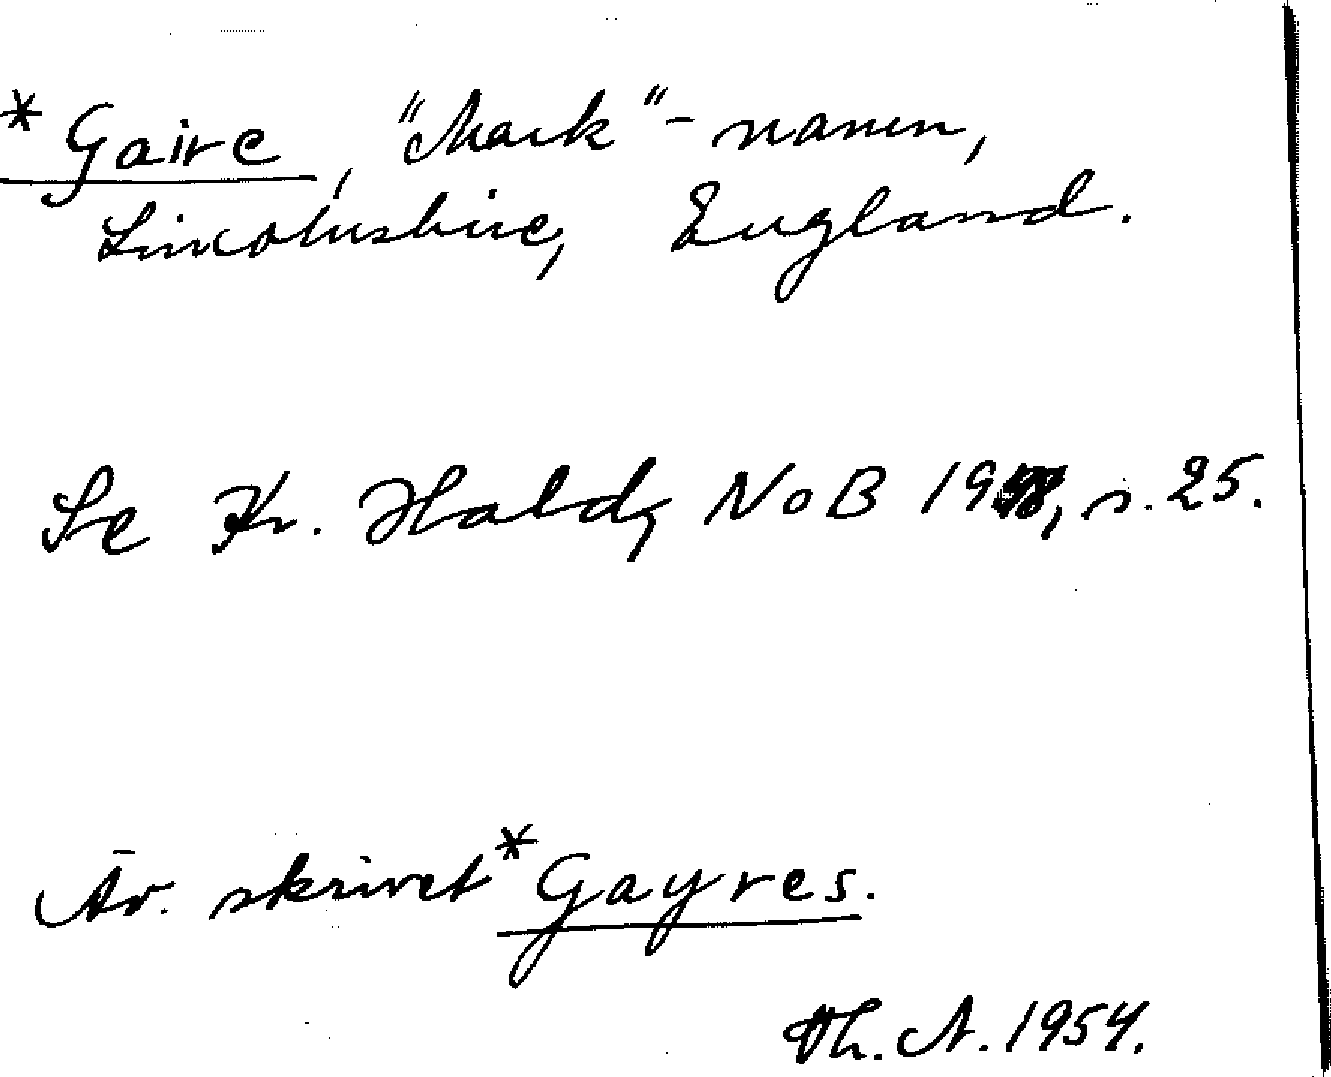 *Gaire, "Mark"-namn,
Lincolnshire, England.
Se Kr. Hald, NoB 1948, s. 25.
Äv. skrivet *Gayres.
Th. A. 1954.